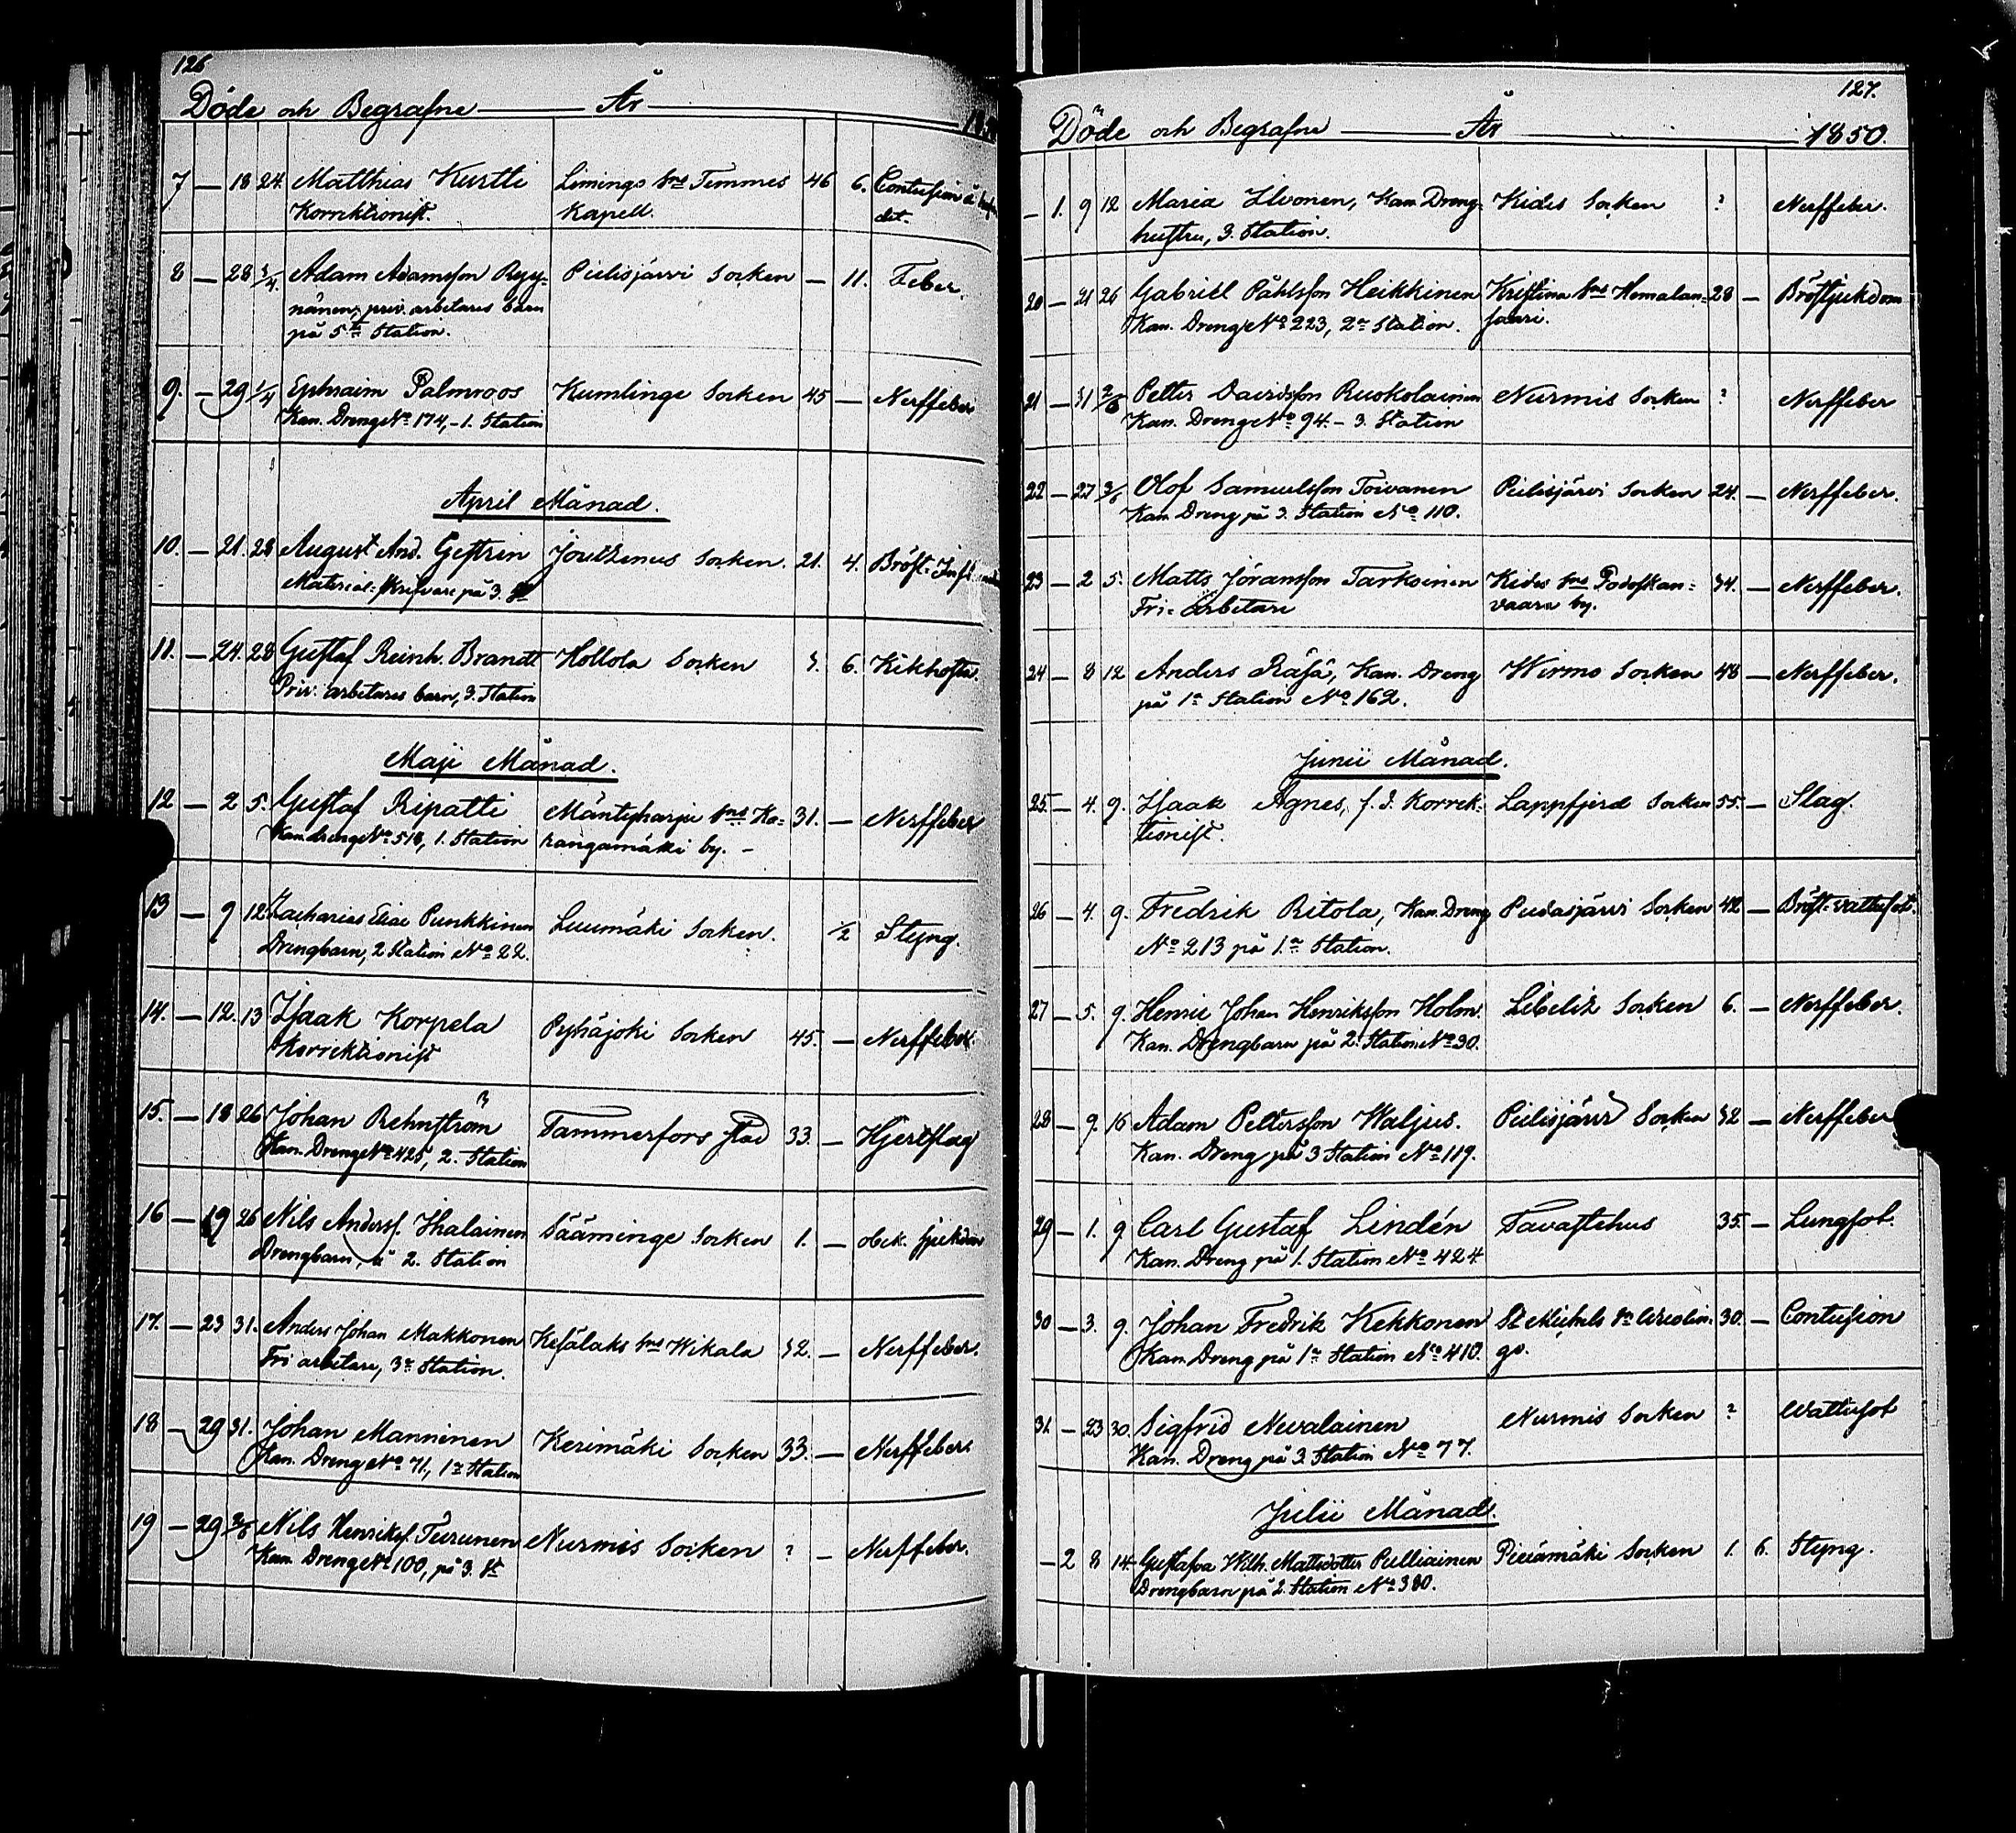 126
Döde och Begrafne År
7 — 18 24. Matthias Kurtti Limingo sn Temmes 46 6. Contusion å
Korrektionist. Kapell. det.
8 — 28 3/4. Adam Adamsson Ryy- Pielisjärvi Socken — 11. Feber.
nänen, priv. arbetares barn
på 5te Station.
9. — 29 1/4 Ephraim Palmroos Kumlinge Socken 45 — Nerffeber
Kan. Dreng No 174, - 1. Station
April Månad.
10. — 21. 28 August And. Gestrin Joutzenus Socken. 21. 4. Bröst-
Material-skrifvare på 3. St
11. — 24. 28 Gustaf Reinh. Brandt Hollola Socken 3. 6. Kikhosta.
Priv. arbetares barn, 3. Station
Maji Månad.
12 — 2 5. Gustaf Ripatti Mäntyharju sn Ko- 31. — Nerffeber
Kan. dreng No 518, 1. Station hangamäki by. -
13 — 9 12. Zacharias Eliae Punkkinen Luumäki Socken. 1/2 Styng.
Drengbarn, 2 Station No 22.
14. — 12. 13 Isaak Korpela Pyhäjoki Socken 45. — Nerffeber.
Korrektionist
15. — 18 26 Johan Rehnström Tammerfors stad 33. — Hjertslag
Kan. Dreng No 425, 2. Station
16 — 19 26 Nils Anderss. Ihalainen Sääminge Socken 1. — obek. sjukdom
Drengbarn, å 2. Station
17. — 23 31. Anders Johan Makkonen Kesälaks sn Wikala 32. — Nerffeber.
Fri arbetare, 3e Station.
18 — 29 31. Johan Manninen Kerimäki Socken 33. — Nerffeber.
Kan. Dreng No 71, 1a Station
19 — 29 2/6 Nils Henrikss. Turunen Nurmis Socken ? — Nerffeber.
Kan. Dreng No 100, på 3. St
127.
Döde och Begrafne År 1850.
— 1. 9 12 Maria Ilvonen, Kan. Dreng- Kides Socken ? Nerffeber.
hustru, 3. Station.
20 — 21 26 Gabriel Påhlsson Heikkinen Kristina sn Homalan- 28 — Bröstsjukdom
Kan. Dreng No 223, 2a Station. saari.
21 — 31 2/6 Petter Davidsson Ruokolainen Nurmis Socken ? Nerffeber
Kan. Dreng No 94. - 3. Station
22 — 27 3/6 Olof Samuelsson Toivanen Pielisjärvi Socken 24. — Nerffeber.
Kan. Dreng på 3. Station No 110.
23 — 2 5. Matts Jöransson Tarkoinen Kides sn Podoskan- 34. — Nerffeber.
Fri-arbetare vaara by.
24 — 8 12 Anders Räsä, Kan. Dreng Wirmo Socken 48 — Nerffeber.
på 1a Station No 162.
Junii Månad.
25 — 4. 9. Isaak Agnes, f. d. Korrek- Lappfjerd Socken 55. — Slag.
tionist.
26 — 4. 9. Fredrik Ritola, Kan. Dreng Pudasjärvi Socken 42 — Bröst-vattusot.
No 213 på 1.a Station.
27 — 5. 9. Henric Johan Henriksson Holm. Libelitz Socken 6. — Nerffeber.
Kan. Drengbarn på 2. Station No 30.
28 — 9. 16 Adam Pettersson Waljus. Pielisjärvi Socken 32 — Nerffeber
Kan. Dreng på 3 Station No 119.
29 — 1. 9. Carl Gustaf Lindén Tavastehus 35. — Lungsot.
Kan. Dreng på 1. Station No 424
30 — 3. 9. Johan Fredrik Kekkonen St Michels sn 30. — Contusion
Kan. Dreng på 1a Station No 410. ga.
31. — 23 30. Sigfrid Nevalainen Nurmis Socken ? Wattusot
Kan. Dreng på 3. Station No 77.
Julii Månad.
— 2 8 14. Gustafva Wilh. Mattsdotter Pulliainen Pieksämäki Socken 1. 6. Styng.
Drengbarn på 2 Station No 380.